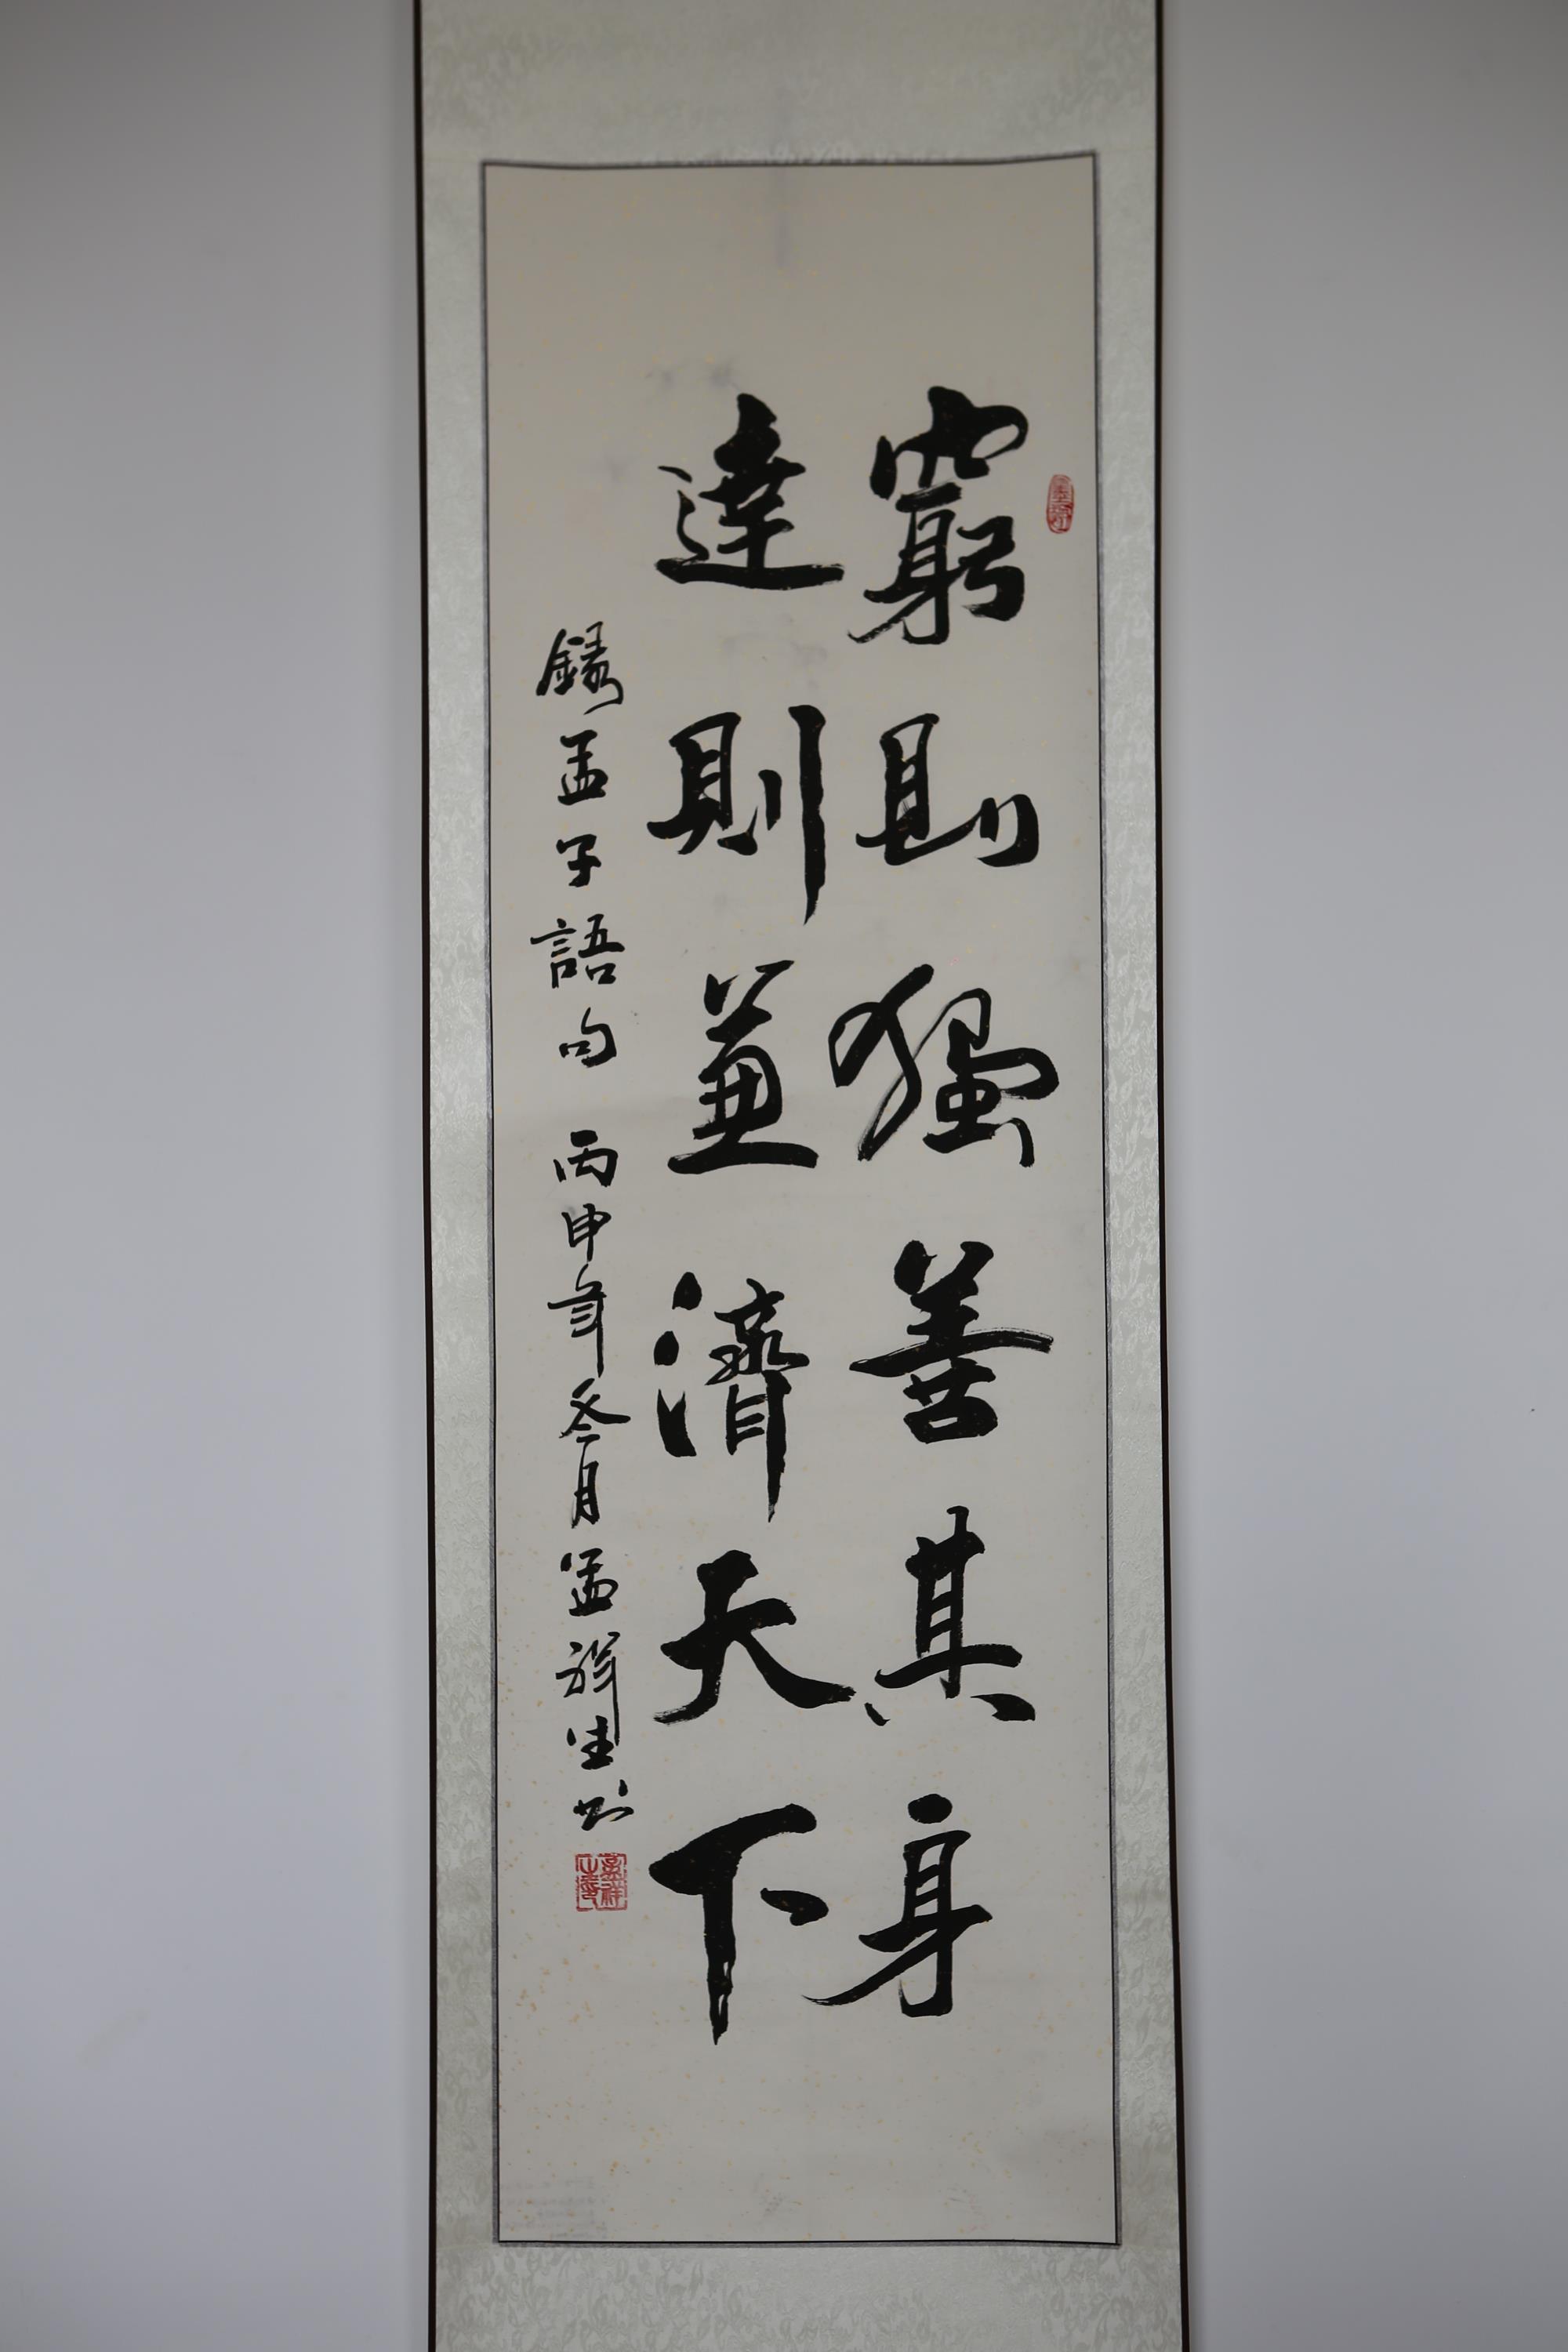 窮則獨善其身
達則兼濟天下
錄孟子語句 丙申年冬月 孟祥生书